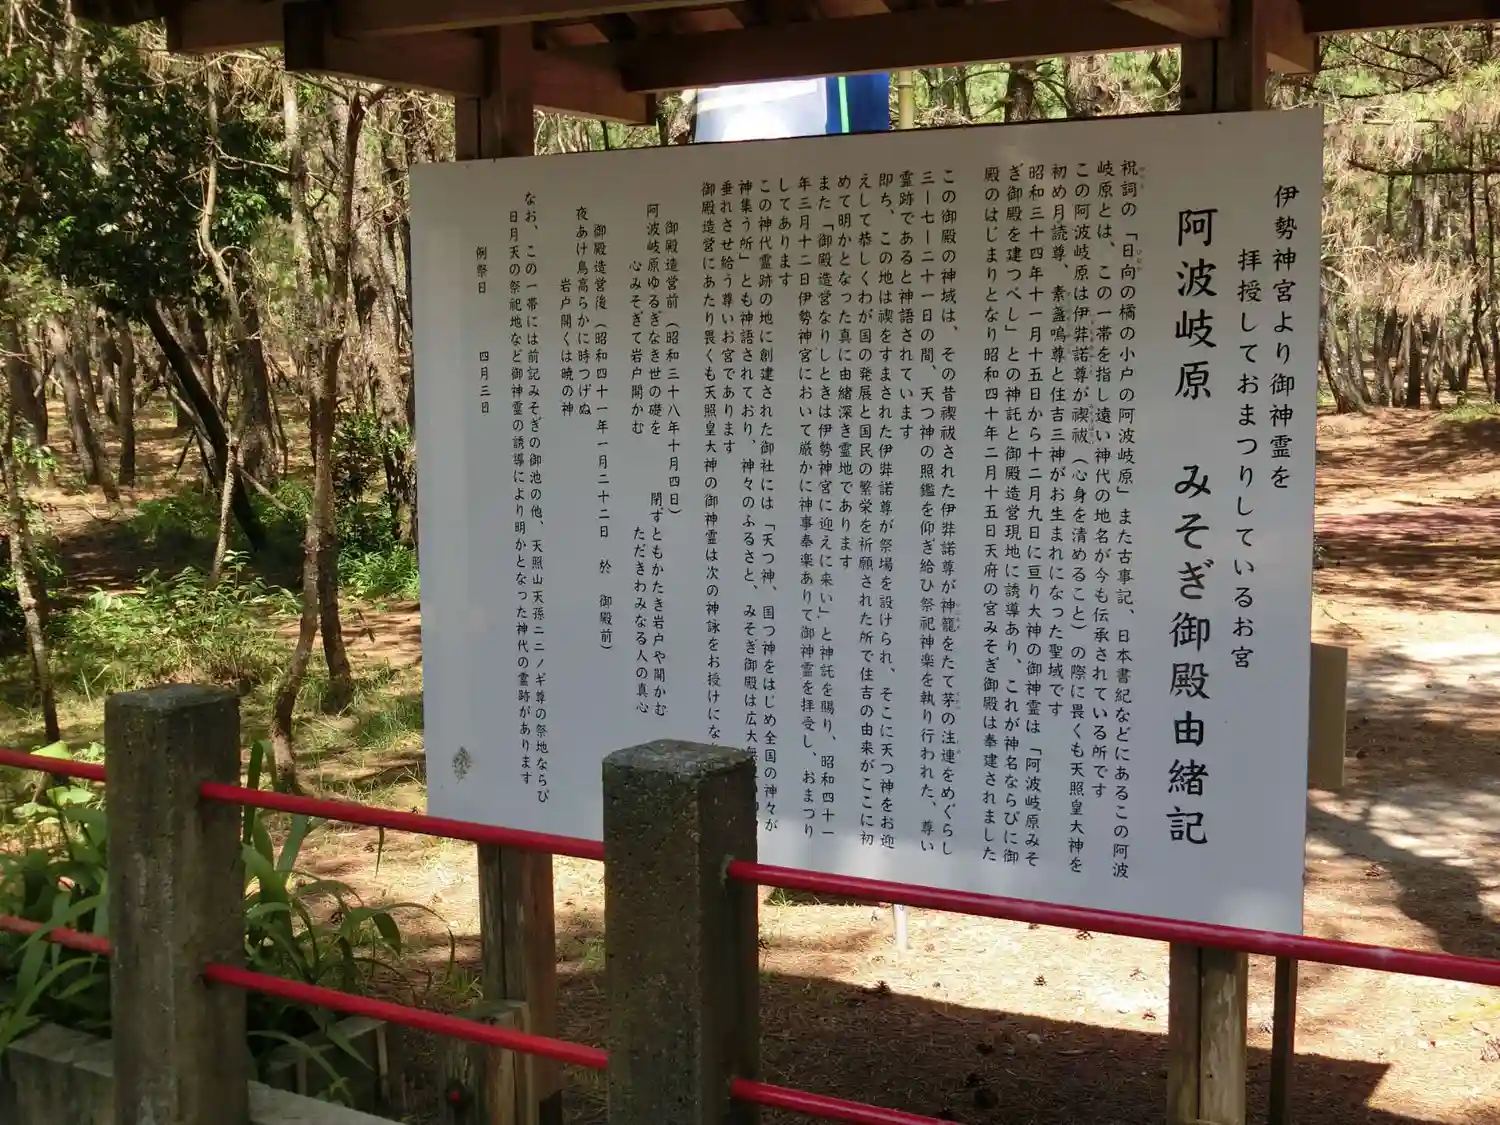 伊勢神宮より御神霊を
拝授しておまつりしているお宮
阿波岐原 みそぎ御殿由緒記
祝詞の「日向の橘の小戸の阿波岐原」また古事記、日本書紀などにあるこの阿波
岐原とは、この一帯を指し遠い神代の地名が今も伝承されている所です
この阿波岐原は伊弉諾尊が禊祓（心身を清めること）の際に畏くも天照皇大神を
初め月読尊、素盞嗚尊と住吉三神がお生まれになった聖域です
昭和三十四年十一月十五日から十二月九日に亘り大神の御神霊は「阿波岐原みそ
ぎ御殿を建つべし」との神託と御殿造営現地に誘導あり、これが神名ならびに御
殿のはじまりとなり昭和四十年二月十五日天府の宮みそぎ御殿は奉建されました
この御殿の神域は、その昔禊祓された伊弉諾尊が神籬をたて茅の注連をめぐらし
三ー七ー二十一日の間、天つ神の照鑑を仰ぎ給ひ祭祀神楽を執り行われた、尊い
霊跡であると神語されています
即ち、この地は禊をすまされた伊弉諾尊が祭場を設けられ、そこに天つ神をお迎
えして恭しくわが国の発展と国民の繁栄を祈願された所で住吉の由来がここに初
めて明かとなった真に由緒深き霊地であります
また「御殿造営なりしときは伊勢神宮に迎えに来い」と神託を賜り、昭和四十一
年三月十二日伊勢神宮において厳かに神事奉楽ありて御神霊を拝受し、おまつり
してあります
この神代霊跡の地に創建された御社には「天つ神、国つ神をはじめ全国の神々が
神集う所」とも神語されており、神々のふるさと、みそぎ御殿は広大無
垂れさせ給う尊いお宮であります
御殿造営にあたり畏くも天照皇大神の御神霊は次の神詠をお授けにな
御殿造営前（昭和三十八年十月四日）
阿波岐原ゆるぎなき世の礎を 閉ずともかたき岩戸や開かむ
心みそぎて岩戸開かむ ただきわみなる人の真心
御殿造営後（昭和四十一年一月二十二日 於 御殿前）
夜あけ鳥高らかに時つげぬ
岩戸開くは暁の神
なお、この一帯には前記みそぎの御池の他、天照山天孫ニニノギ尊の祭地ならび
日月天の祭祀地など御神霊の誘導により明かとなった神代の霊跡があります
例祭日 四月三日